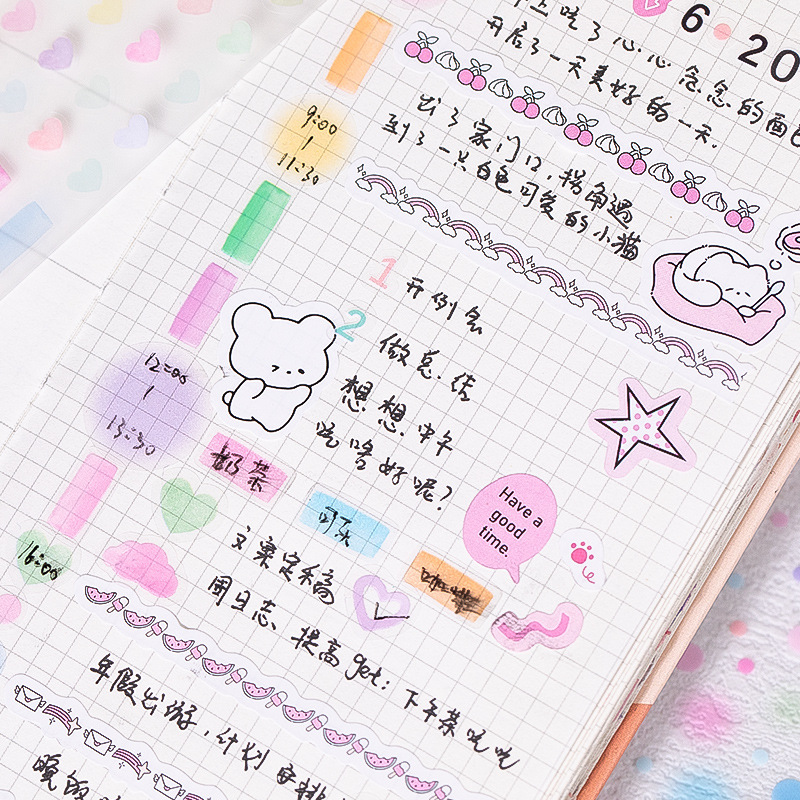 6 20
早上吃了心心念念的面包
开启了一天美好的一天.
9:00
11:30
出了家门口,拐角遇
到了一只白色可爱的小猫
1 开例会
2 做总结
12:00
13:30
想想中午
吃啥好呢?
奶茶
可乐
Have a
good
time.
16:00
文案定稿
周日志、提高get:下午茶吃吃
年假出游,计划安排
晚饭